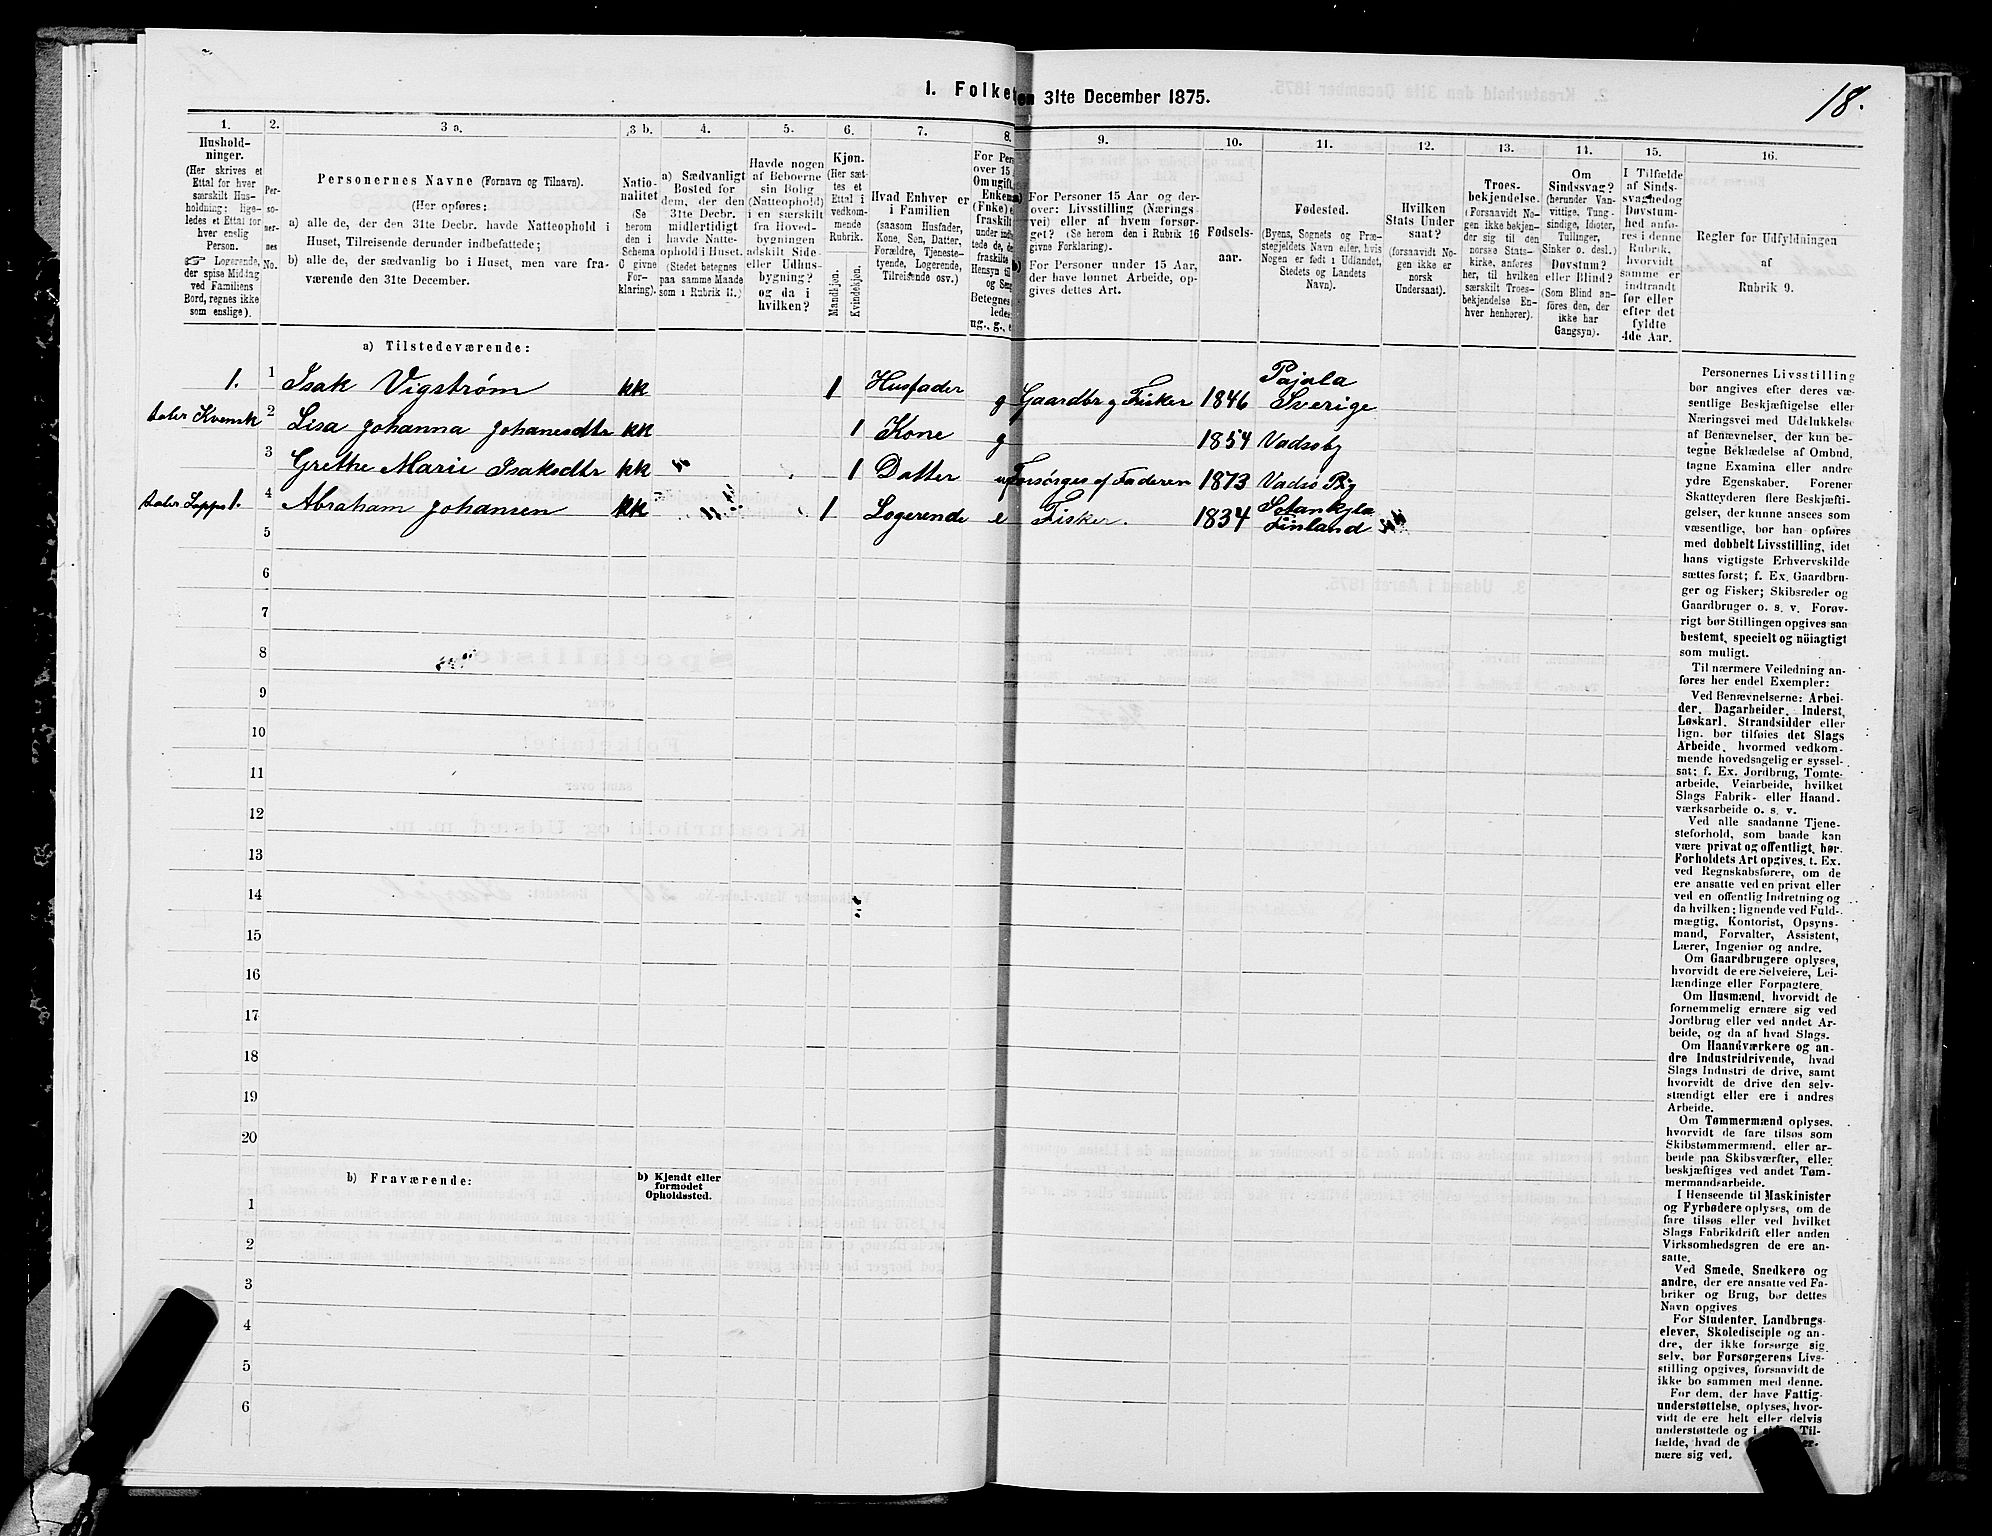 1. Folketæ
en 31te December 1875.
18.
1.
2.
3 a.
3 b.
4.
5.
6.
7.
8.
9.
10.
11.
12.
13.
14.
15.
16.
Hushold-
ninger.
(Her skrives et
Ettal for hver
særskilt Hus-
holdning; lige-
ledes et Ettal for
hver enslig
Person.
☞ Logerende,
der spise Middag
ved Familiens
Bord, regnes ikke
som enslige).
Per-
so-
ner-
nes
No.
Personernes Navne (Fornavn og Tilnavn).
(Her opføres:
a) alle de, der den 31te Decbr. havde Natteophold i
Huset, Tilreisende derunder indbefattede;
b) alle de, der sædvanlig bo i Huset, men vare fra-
værende den 31te December.
Natio-
nalitet
(Se
herom
den i
Schema
C givne
For-
klaring).
a) Sædvanligt
Bosted for
dem, der den
31te Decbr.
midlertidigt
havde Natte-
ophold i Huset.
(Stedet betegnes
paa samme Maade
som i Rubrik 11.)
Havde nogen
af Beboerne
sin Bolig
(Natteophold)
i en særskilt
fra Hoved-
bygningen
adskilt Side-
eller Udhus-
bygning?
og da i
hvilken?
Kjøn.
(Her sæt-
tes et
Ettal i
vedkom-
mende
Rubrik.
Mandkjøn.
Kvindekjøn.
Hvad Enhver er
i Familien
(saasom Husfader,
Kone, Søn, Datter,
Forældre, Tjeneste-
tyende, Logerende,
Tilreisende osv.)
For Pers
over 15
Om ugift,
Enkem
(Enke) e
fraskilt
under indt
tede de, de
fraskilte
Hensyn til
og Sen
Betegnes
ledes
ug., g., e
For Personer 15 Aar og der-
over: Livsstilling (Nærings-
vei) eller af hvem forsør-
get? (Se herom den i Rubrik 16
givne Forklaring).
For Personer under 15 Aar,
der have lønnet Arbeide, op-
gives dettes Art.
Fødsels-
aar.
Fødested.
(Byens, Sognets og Præ-
stegjeldets Navn eller, hvis
Nogen er født i Udlandet,
Stedets og Landets
Navn).
Hvilken
Stats Under
saat?
(forsaavidt No-
gen ikke er
norsk
Undersaat).
Troes-
bekjendelse.
(Forsaavidt No-
gen ikke bekjen-
der sig til den
norske Stats-
kirke, anføres
her, til hvilken
særskilt Troes-
bekjendelse En-
hver henhører).
Om
Sindssvag?
(herunder Van-
vittige, Tung-
sindige, Idioter,
Tullinger,
Sinker o. desl.)
Døvstum?
eller Blind?
(Som Blind an-
føres den, der
ikke har
Gangsyn).
I Tilfælde
af Sinds-
svaghed og
Døvstum-
hed anfø-
res i denne
Rubrik,
hvorvidt
samme er
indtraadt
før eller
efter det
fyldte
4de Aar.
Regler for Udfyldningen
af
Rubrik 9.
a) Tilstedeværende:
1. 1 Isak Vigstrøm kk 1 Husfader g Gaardbr og Fisker 1846 Pajala Sverige
taler Kvensk 2 Lisa Johanna Johanesdtr kk 1 Kone g 1854 Vadsøby
3 Grethe Marie Isaksdtr kk 1 Datter u Forsørges af Faderen 1873 Vadsø
1. 4 Abraham Johansen kk 1 Logerende e Fisker. 1834 Finland
5
6
7
8
9
10
11
12
13
14
15
16
17
18
19
20
b) Fraværende:
b) Kjendt eller
formodet
Opholdssted.
1
2
3
4
5
6
Personernes Livsstilling
bør angives efter deres væ-
sentlige Beskjæftigelse eller
Næringsvei med Udelukkelse
af Benævnelser, der kun be-
tegne Beklædelse af Ombud,
tagne Examina eller andre
ydre Egenskaber. Forener
Skatteyderen flere Beskjæfti-
gelser, der kunne ansees som
væsentlige, bør han opføres
med dobbelt Livsstilling, idet
hans vigtigste Erhvervskilde
sættes først; f. Ex. Gaardbru-
ger og Fisker; Skibsreder og
Gaardbruger o. s. v. Forøv-
rigt bør Stillingen opgives saa
bestemt, specielt og nöiagtigt
som muligt.
Til nærmere Veiledning an-
føres her endel Exempler:
Ved Benævnelserne: Arbei-
der, Dagarbeider, Inderst,
Løskarl, Strandsidder eller
lign. bør tilføies det Slags
Arbeide, hvormed vedkom-
mende hovedsagelig er syssel-
sat; f. Ex. Jordbrug, Tomte-
arbeide, Veiarbeide, hvilket
Slags Fabrik- eller Haand-
værksarbeide o. s. v.
Ved alle saadanne Tjene-
steforhold, som baade kan
være privat og offentligt, bør
Forholdets Art opgives, t. Ex.
ved Regnskabsførere, om de
ere ansatte ved en privat eller
ved en offentlig Indretning og
da hvilken; lignende ved Fuld-
mægtig, Kontorist, Opsyns-
mand, Forvalter, Assistent,
Lærer, Ingeniør og andre.
Om Gaardbrugere oplyses,
hvorvidt de ere Selveiere, Lei-
lændinge eller Forpagtere.
Om Husmænd, hvorvidt de
fornemmelig ernære sig ved
Jordbrug eller ved andet Ar-
beide, og da af hvad Slags.
Om Haandværkere og an-
dre Industridrivende, hvad
Slags Industri de drive, samt
hvorvidt de drive den selv-
stændigt eller ere i andres
Arbeide.
Om Tømmermænd oplyses,
hvorvidt de fare tilsøs som
Skibstømmermænd, eller ar-
beide paa Skibsværfter, eller
beskjæftiges ved andet Tøm-
mermandsarbeide.
I Henseende til Maskinister
og Fyrbødere oplyses, om de
fare tilsøs eller ved hvilket
Slags Fabrikdrift eller anden
Virksomhedsgren de ere an-
satte.
Ved Smede, Snedkere og
andre, der ere ansatte ved Fa-
briker og Brug, bør dettes
Navn opgives
For Studenter, Landbrugs-
elever, Skoledisciple og an-
dre, der ikke forsørge sig
selv, bør Forsørgerens Livs-
stilling opgives, forsaavidt de
ikke bo sammen med denne.
For dem, der have Fattig-
understøttelse, oplyses, hvor-
vidt de ere helt eller delvis
understøttede og i Til-
fælde, hvad de
nære sig ved.